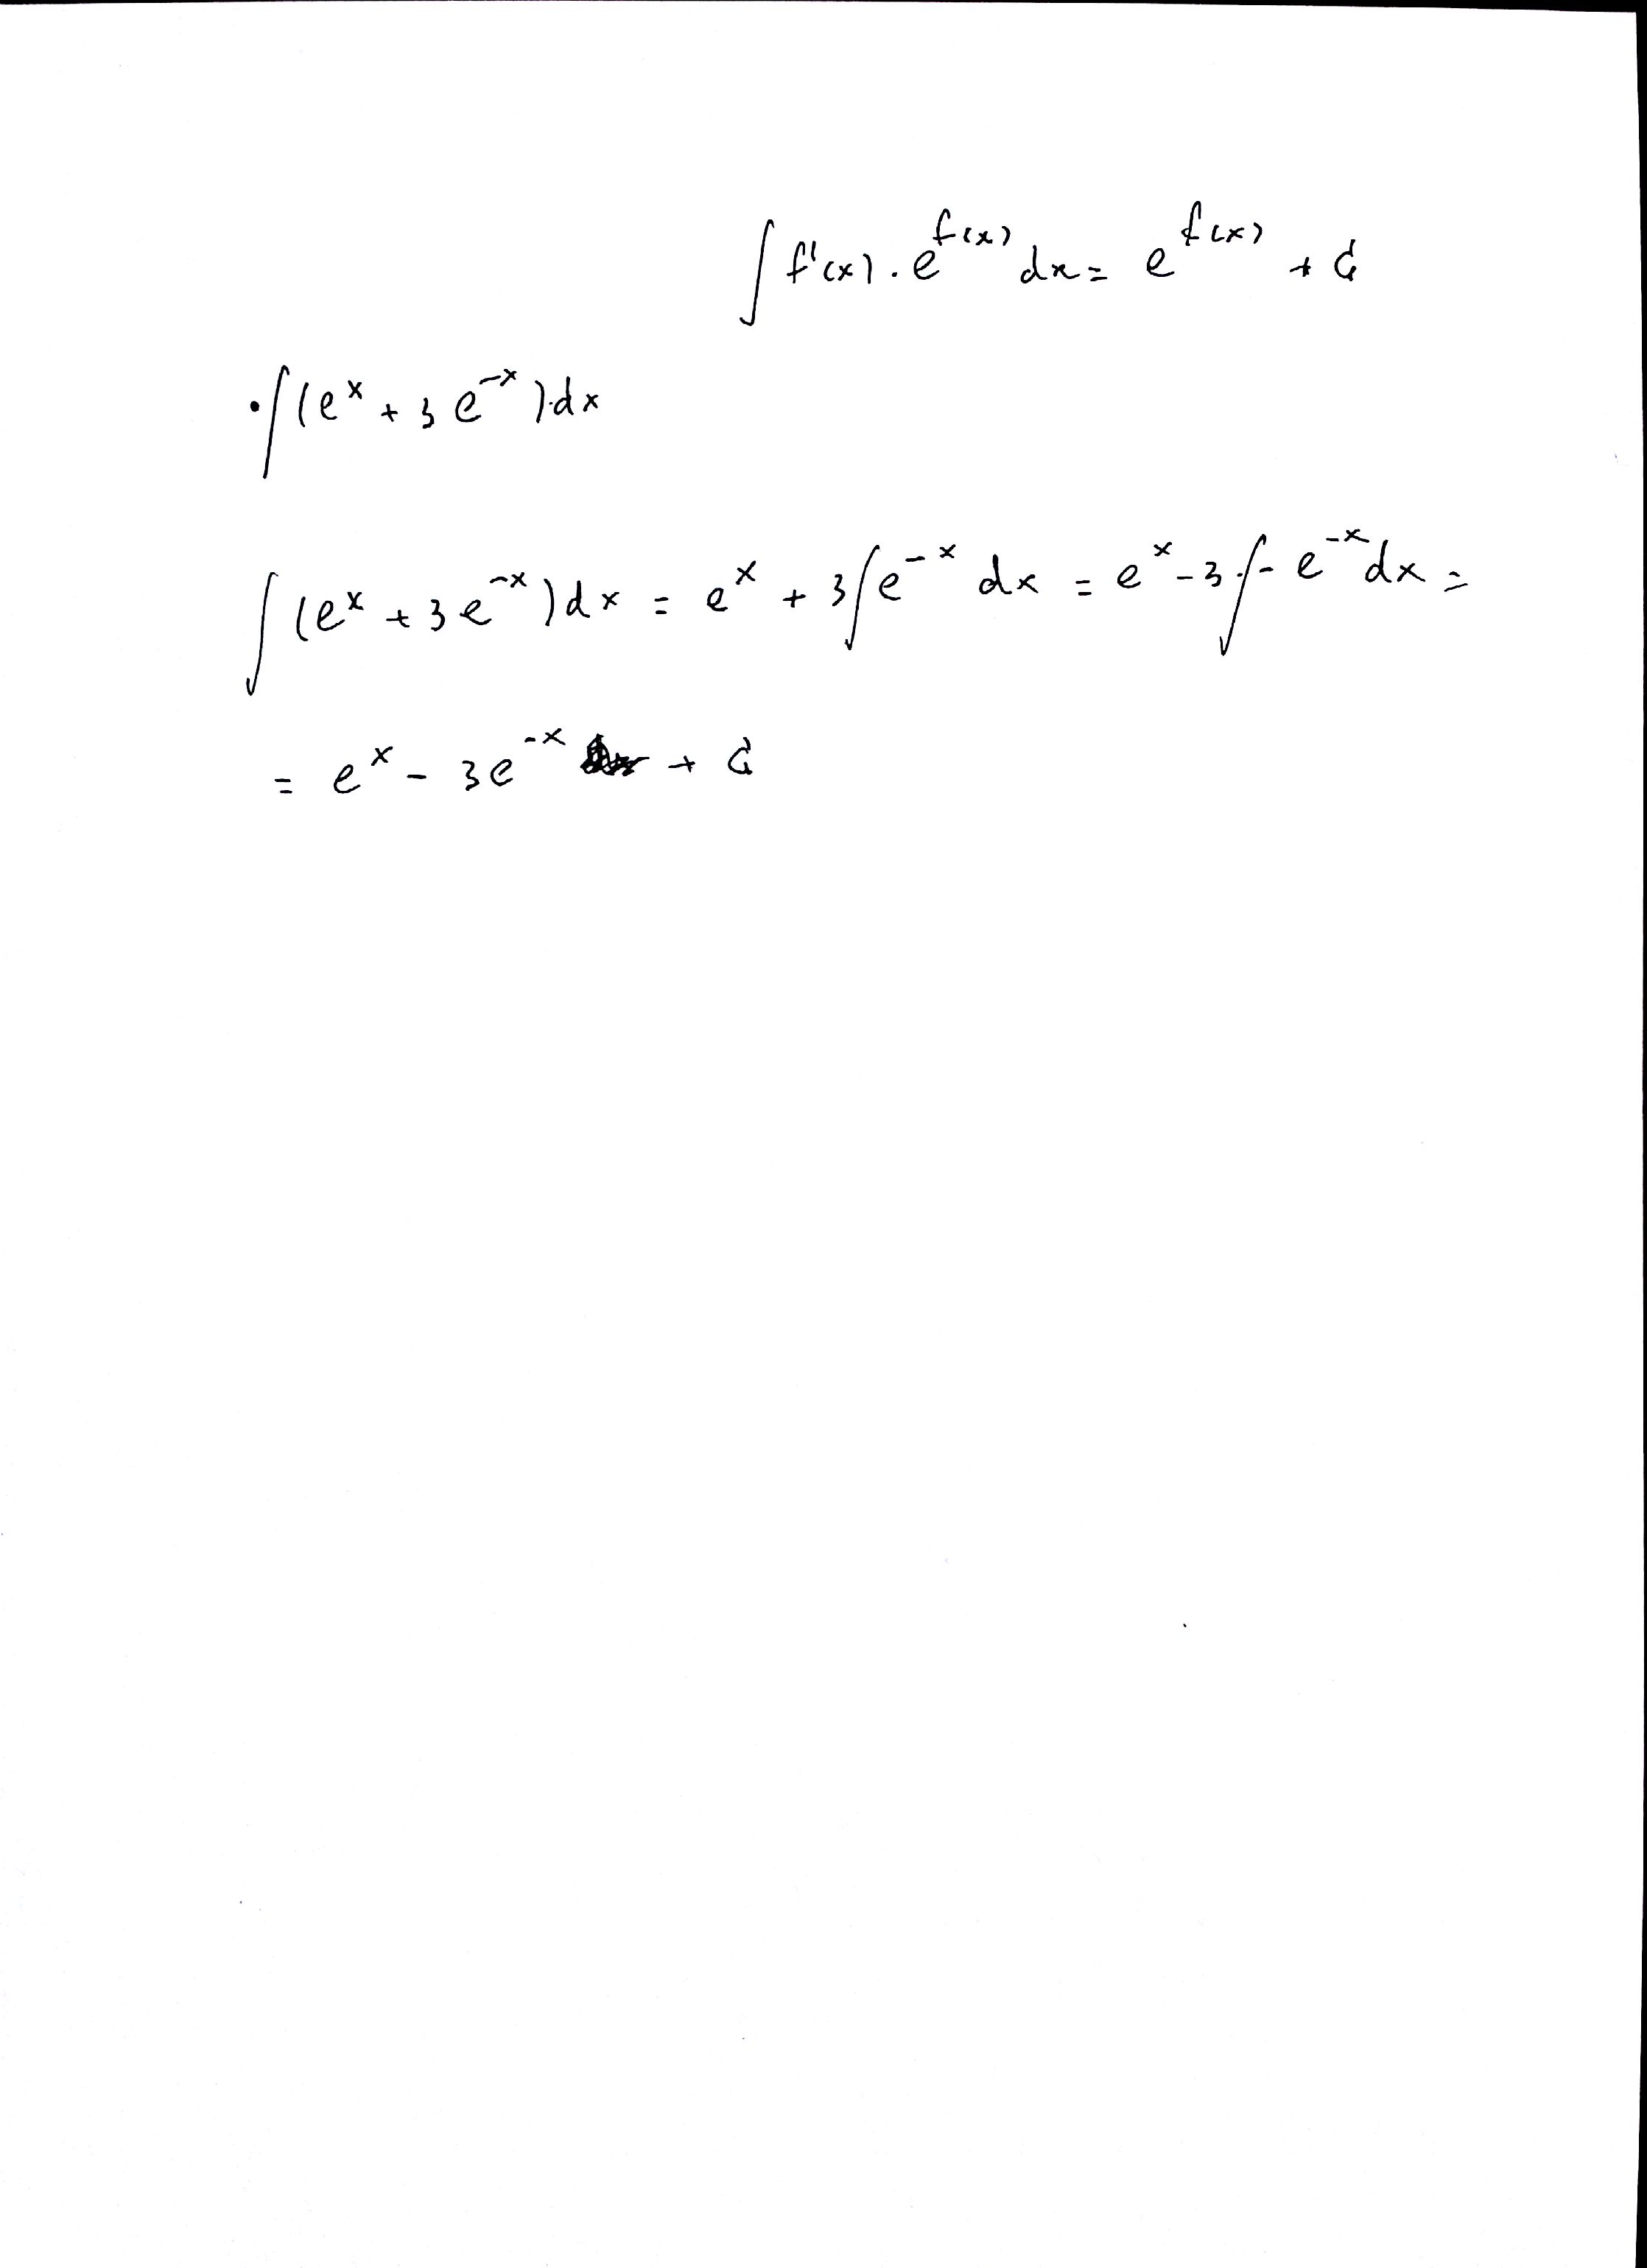 ∫ f'(x) . e^f(x) dx = e^f(x) + C
• ∫ (e^x + 3 e^-x ).dx
∫ (e^x + 3 e^-x ) dx = e^x + 3 ∫ e^-x dx = e^x - 3 . ∫ - e^-x dx =
= e^x - 3 e^-x + C